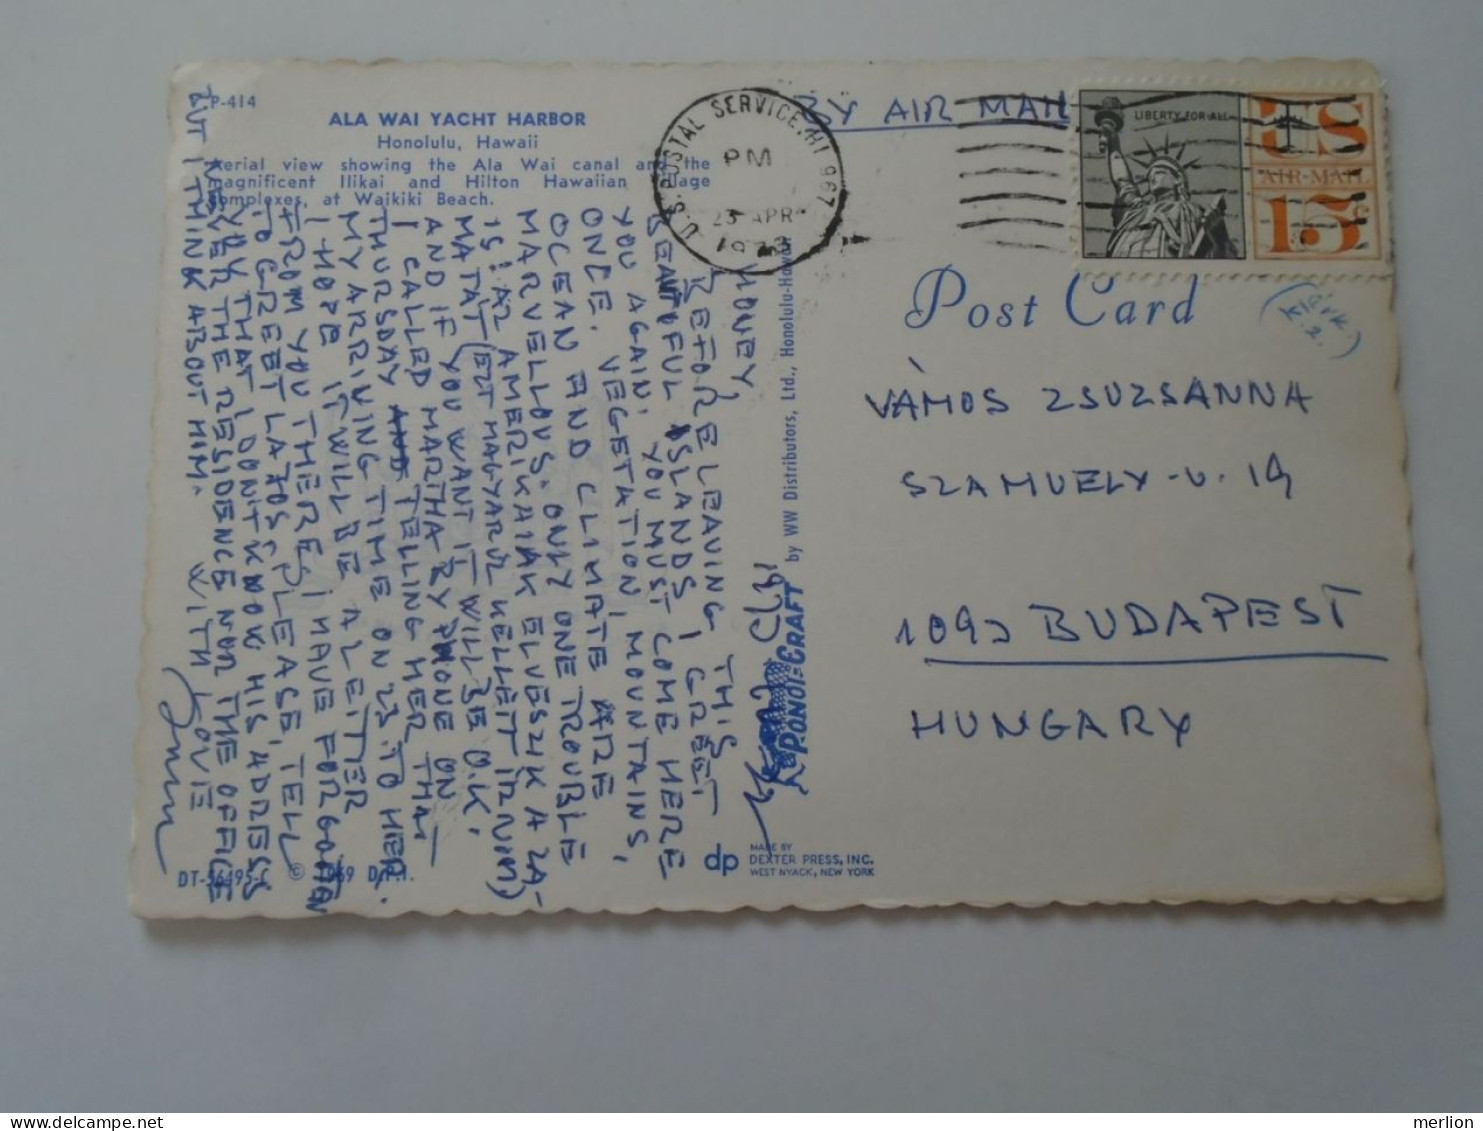 P-414
ALA WAI YACHT HARBOR
Honolulu, Hawaii
Aerial view showing the Ala Wai canal and the
magnificent Ilikai and Hilton Hawaiian Village
complexes, at Waikiki Beach.
U.S. POSTAL SERVICE, HI 967
PM
23 APR
BY AIR MAIL
LIBERTY FOR ALL
US
AIR MAIL
15c
Post Card
VÁMOS ZSUZSANNA
SZAMUELY-U. 19
BUDAPEST
HUNGARY
HONEY,
BEFORE LEAVING THIS
BEAUTIFUL ISLANDS I GREET
YOU AGAIN. YOU MUST COME HERE
ONCE. VEGETATION, MOUNTAINS,
OCEAN AND CLIMATE ARE
MARVELLOUS. ONLY ONE TROUBLE
IS: AZ AMERIKAIAK ELVESZIK A ZA-
MATÁT (EZT MAGYARUL KELLETT IRNIM)
AND IF YOU WANT IT WILL BE O.K.
I CALLED MARTHA BY PHONE ON
THURSDAY TELLING HER THAT
MY ARRIVING TIME ON 23 TO HER.
I HOPE IT WILL BE A LETTER
FROM YOU THERE. I HAVE FORGOTTEN
TO GREET LAJOS. PLEASE, TELL
YOU THAT I DON'T KNOW HIS ADRESS
NEITHER THE RESIDENCE NOR THE OFFICE
BUT I THINK ABOUT HIM.
WITH LOVE
by WW Distributors, Ltd., Honolulu-Hawaii
dp
MADE BY
DEXTER PRESS, INC.
WEST NYACK, NEW YORK
DT-56495-C © 1969 D.P.I.